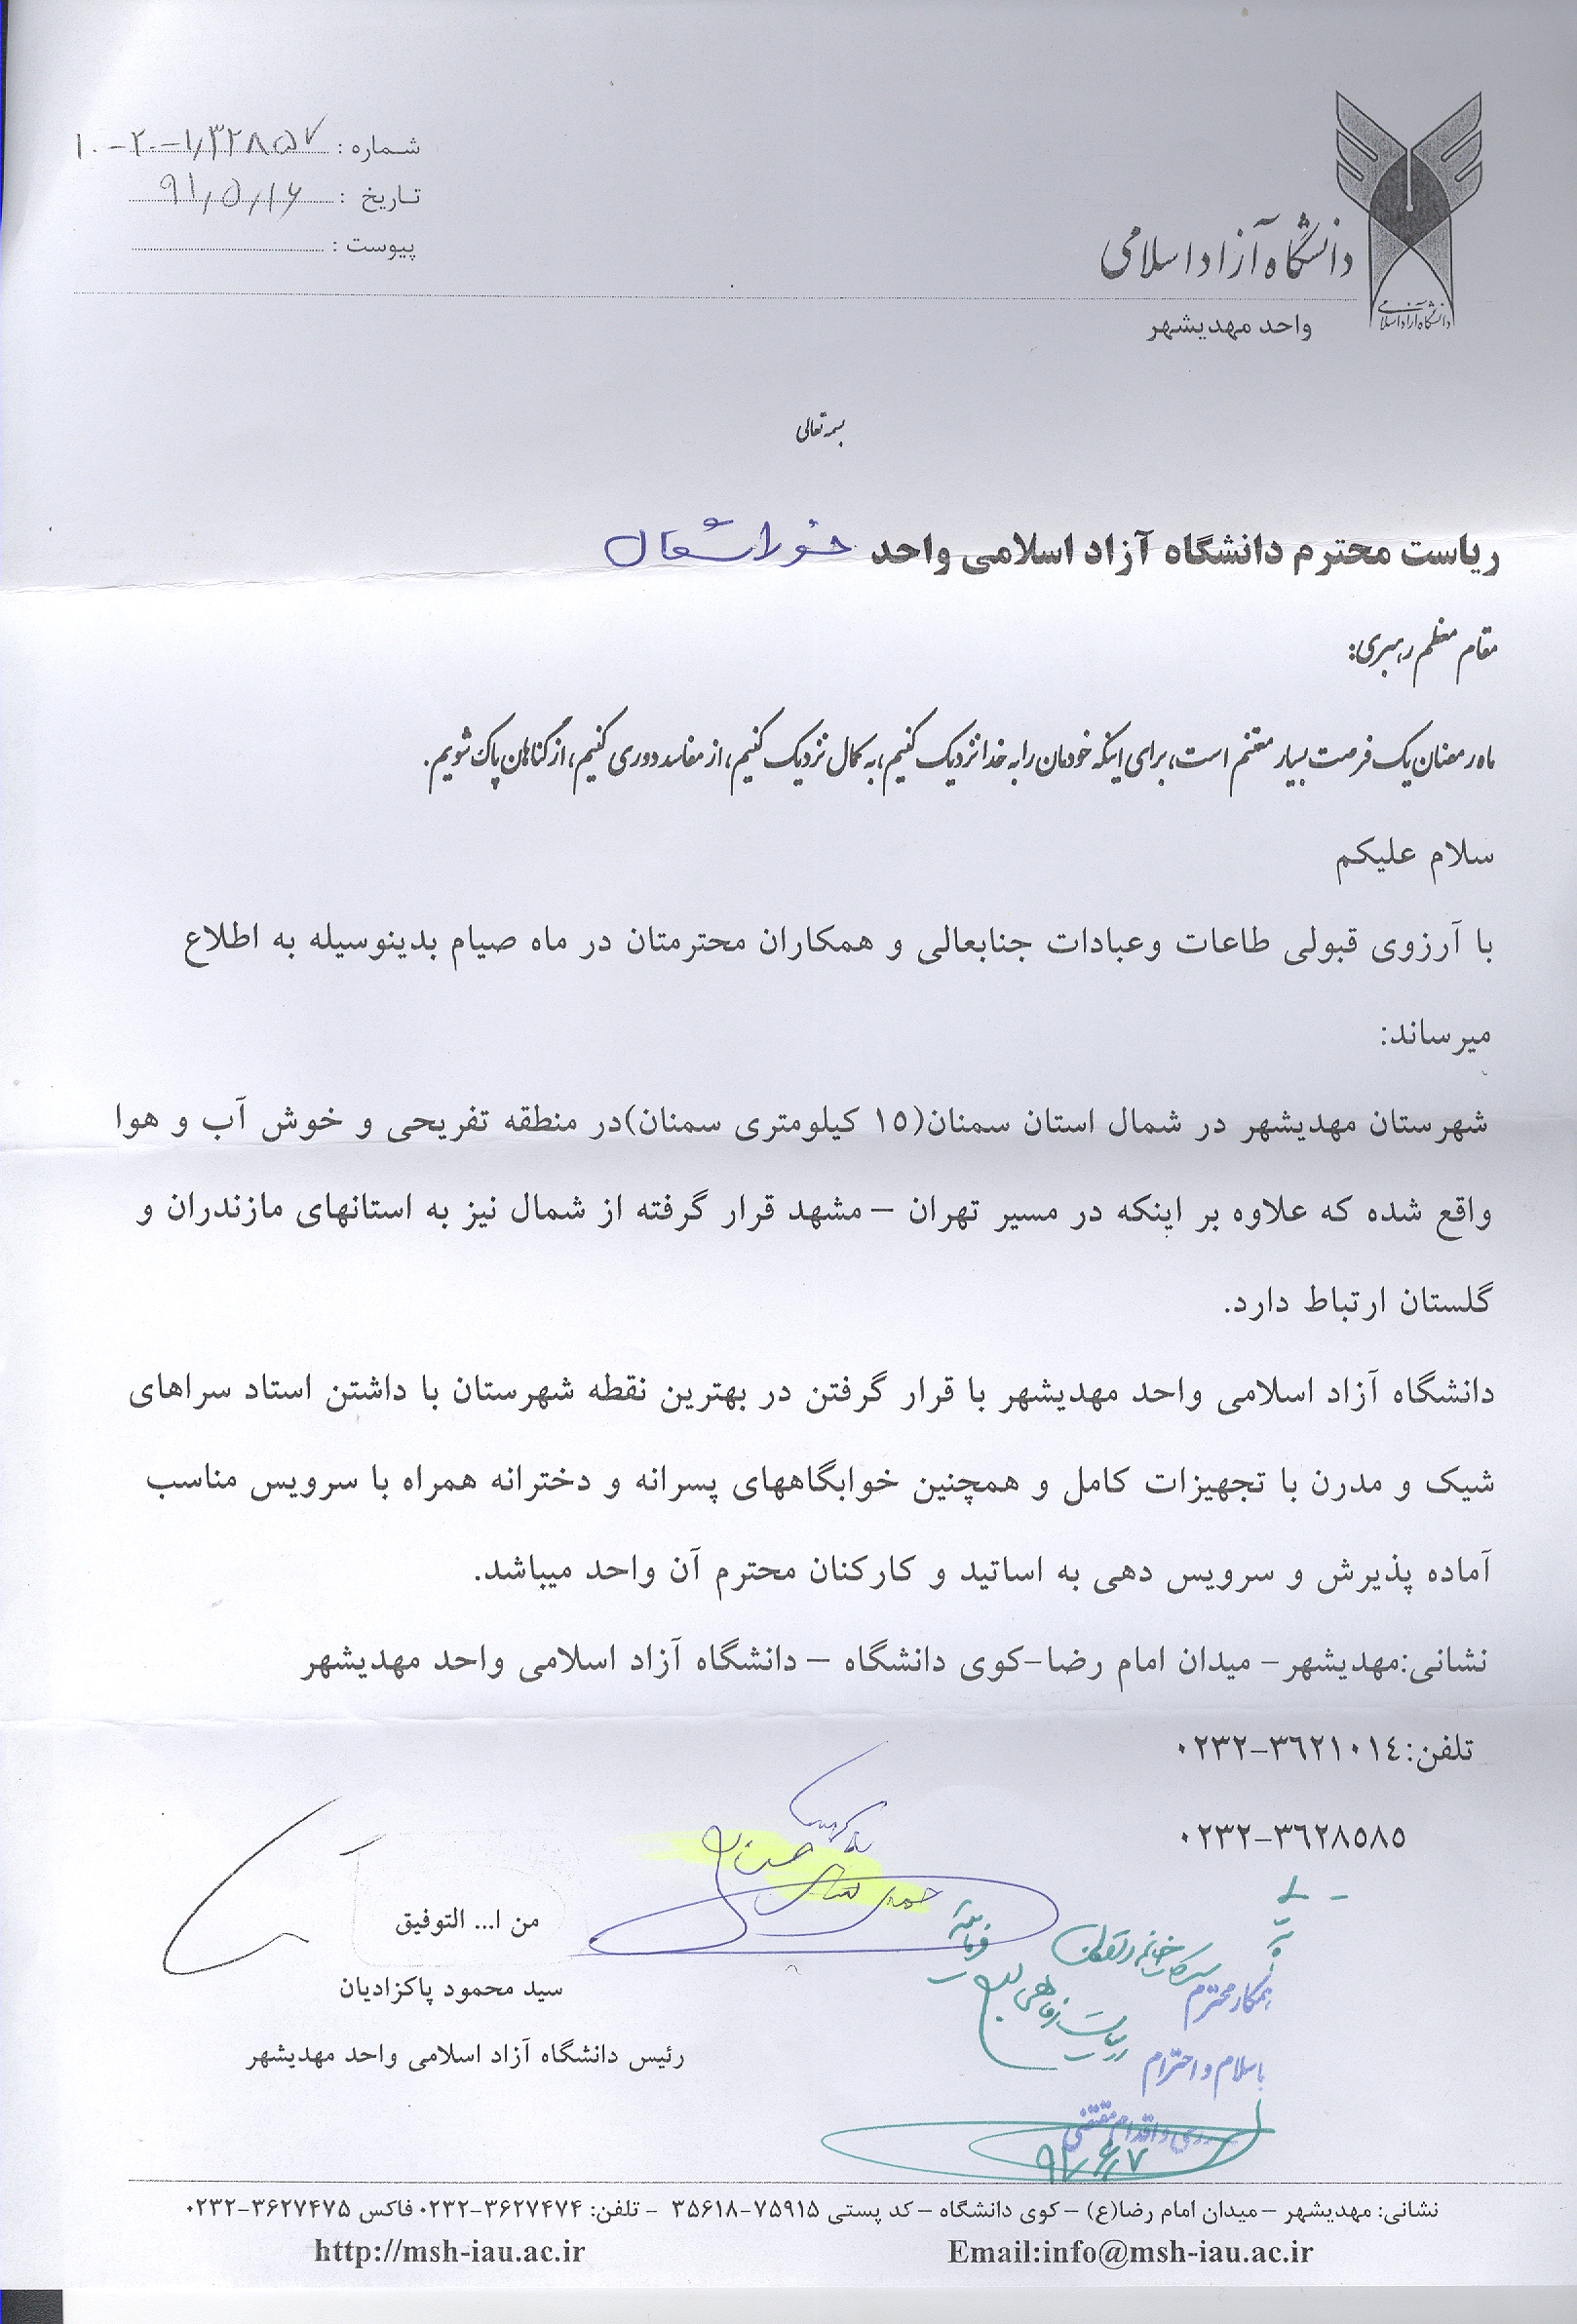 دانشگاه آزاد اسلامی
دانشگاه آزاد اسلامی
واحد مهدیشهر
شماره : ۱۰-۲۰-۱/۳۲۸۵۷
تاریخ : ۹۱/۵/۱۶
پیوست :
بسمه تعالی
ریاست محترم دانشگاه آزاد اسلامی واحد
مقام معظم رهبری:
ماه رمضان یک فرصت بسیار مغتنم است، برای اینکه خودمان را به خدا نزدیک کنیم، به کمال نزدیک کنیم، از مفاسد دوری کنیم، از گناهان پاک شویم.
سلام علیکم
با آرزوی قبولی طاعات وعبادات جنابعالی و همکاران محترمتان در ماه صیام بدینوسیله به اطلاع
میرساند:
شهرستان مهدیشهر در شمال استان سمنان(۱۵ کیلومتری سمنان)در منطقه تفریحی و خوش آب و هوا
واقع شده که علاوه بر اینکه در مسیر تهران – مشهد قرار گرفته از شمال نیز به استانهای مازندران و
گلستان ارتباط دارد.
دانشگاه آزاد اسلامی واحد مهدیشهر با قرار گرفتن در بهترین نقطه شهرستان با داشتن استاد سراهای
شیک و مدرن با تجهیزات کامل و همچنین خوابگاههای پسرانه و دخترانه همراه با سرویس مناسب
آماده پذیرش و سرویس دهی به اساتید و کارکنان محترم آن واحد میباشد.
نشانی:مهدیشهر- میدان امام رضا-کوی دانشگاه – دانشگاه آزاد اسلامی واحد مهدیشهر
تلفن:۰۲۳۲-۳۶۲۱۰۱٤
۰۲۳۲-۳٦۲۸۵۸۵
من ا... التوفیق
سید محمود پاکزادیان
رئیس دانشگاه آزاد اسلامی واحد مهدیشهر
همکار محترم
باسلام و احترام
و اقدام مقتضی
۹۱/۶/۷
نشانی: مهدیشهر – میدان امام رضا(ع) – کوی دانشگاه – کد پستی ۷۵۹۱۵-۳۵۶۱۸ - تلفن: ۳۶۲۷۴۷۴-۰۲۳۲ فاکس ۳۶۲۷۴۷۵-۰۲۳۲
http://msh-iau.ac.ir Email:info@msh-iau.ac.ir